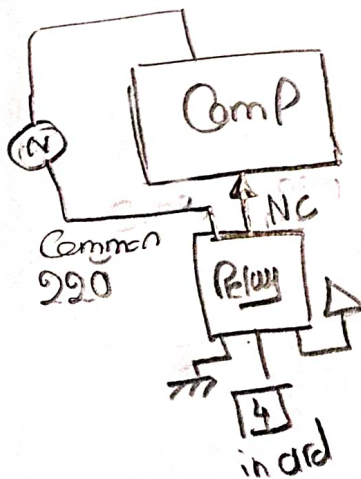 ComP
N
NC
Common
220
Relay
4
in ard